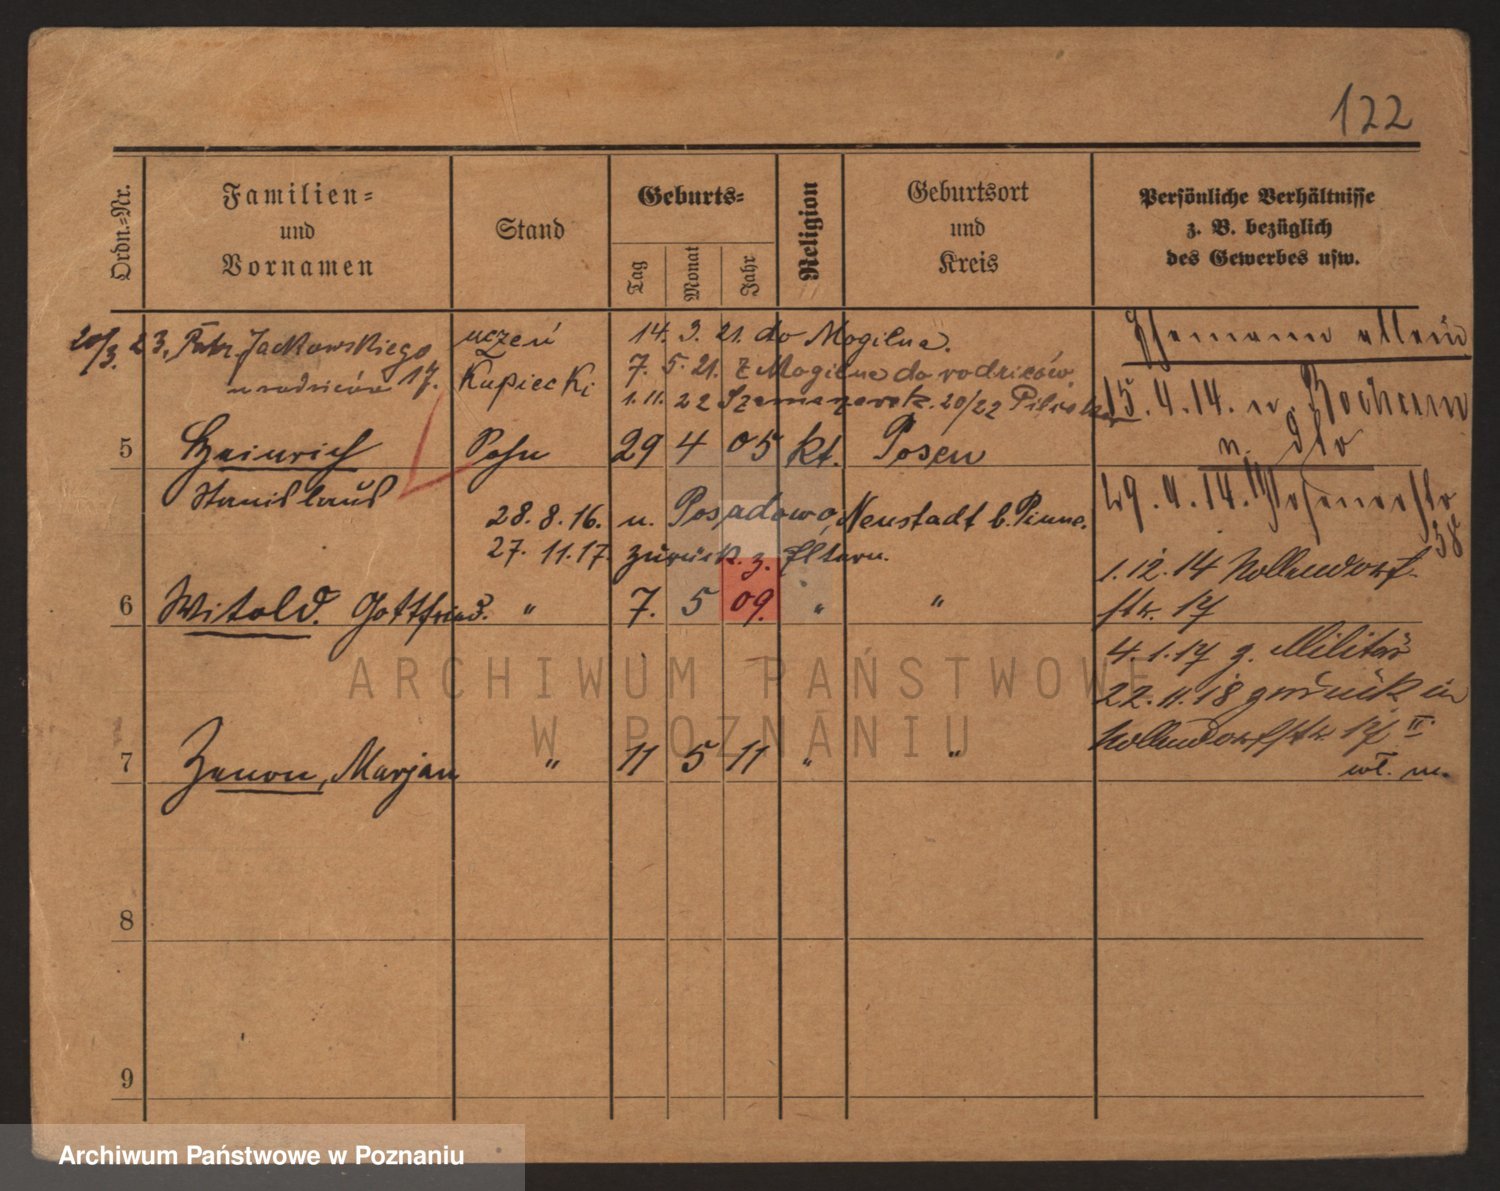 122
Ordn.=Nr.
Familien=
und
Vornamen
Stand
Geburts=
Tag
Monat
Jahr
Religion
Geburtsort
und
Kreis
Persönliche Verhältnisse
z. B. bezüglich
des Gewerbes usw.
20/3. 23. Patr. Jackowskiego
u rodziców 17.
uczeń
Kupiecki
14. 3. 21. do Mogilna.
7. 5. 21. z Mogilna do rodziców.
1. 11. 22 20/22
Ehemann allein
15. 4. 14. n. Bochum
5 Heinrich Sohn 29 4 05 kt. Posen
Stanislaus
n. dto
29. 4. 14.
38
28. 8. 16. n. Posadowo, Neustadt b. Pinne.
27. 11. 17. zurück z. Eltern.
1. 12. 14 Nollendorf-
str. 17
6 Witold. Gottfried. " 7. 5 09. " "
4. 1. 17 z. Militär
22. 11. 18 zurück in
Nollendorfstr. 17 II.
7 Zenon, Marjan " 11 5 11 " "
8
9
ARCHIWUM PAŃSTWOWE
W POZNANIU
Archiwum Państwowe w Poznaniu